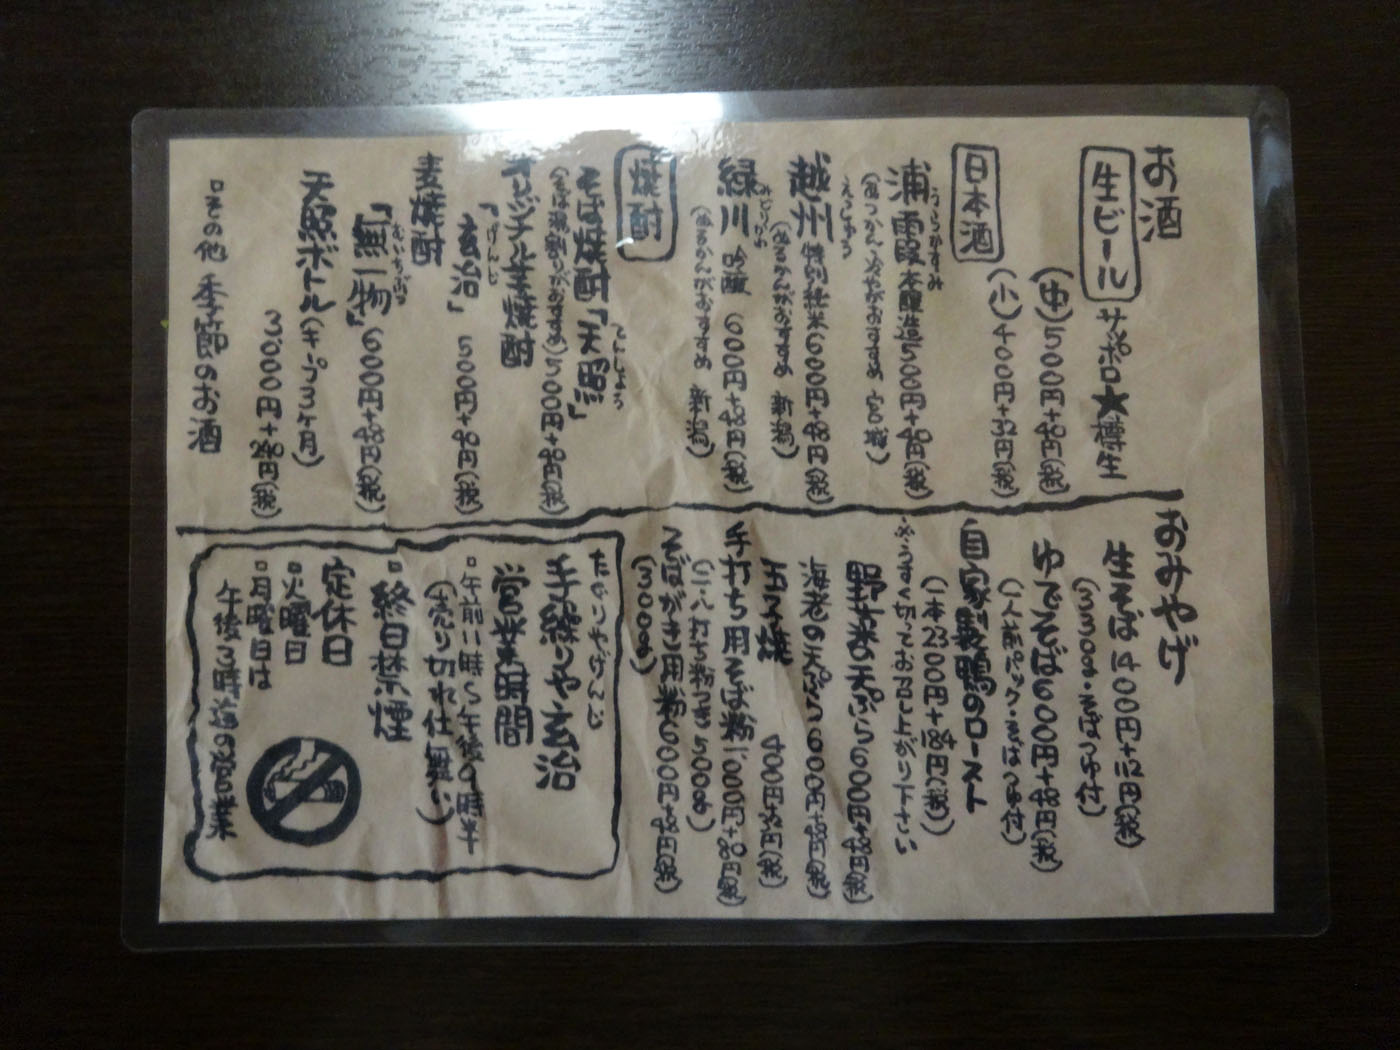 お酒
生ビール サッポロ★樽生
(中)500円+40円(税)
(小)400円+32円(税)
日本酒
うらかすみ
浦霞 本醸造500円+40円(税)
(あつかん、ひやがおすすめ 宮城)
えっしゅう
越州 特別純米600円+48円(税)
(ぬるかんがおすすめ 新潟)
みどりかわ
緑川 吟醸 600円+48円(税)
(ぬるかんがおすすめ 新潟)
焼酎
そば焼酎「天照」
(そば湯割りがおすすめ)500円+40円(税)
オリジナル芋焼酎
げんじ
「玄治」 500円+40円(税)
麦焼酎
むいちぶつ
「無一物」600円+48円(税)
天照ボトル(キープ3ヶ月)
3,000円+240円(税)
・その他 季節のお酒
おみやげ
生そば 1400円+112円(税)
(330g・そばつゆ付)
ゆでそば600円+48円(税)
(一人前パック・そばつゆ付)
自家製鴨のロースト
(一本2300円+184円(税))
※うすく切ってお召し上がり下さい
野菜の天ぷら600円+48円(税)
海老の天ぷら600円+48円(税)
玉子焼 400円+32円(税)
手打ち用そば粉1,000円+80円(税)
(二・八打ち粉つき500g)
そばがき用粉600円+48円(税)
(300g)
手繰りや 玄治
営業時間
・午前11時〜午後9時半
(売り切れ仕舞い)
・終日禁煙
定休日
・火曜日
・月曜日は
午後3時迄の営業